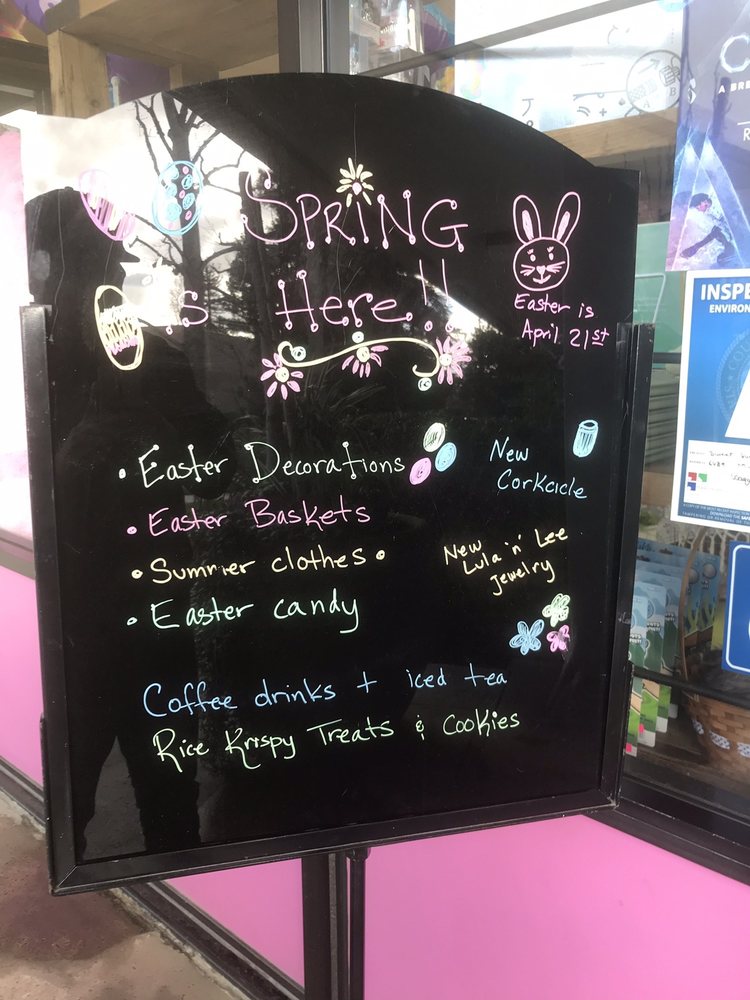 SPRING
is Here!!
Easter is
April 21st
• Easter Decorations
• Easter Baskets
• Summer clothes •
• Easter candy
New
Corkcicle
New
Lula 'n' Lee
Jewelry
Coffee drinks + iced tea
Rice Krispy Treats & Cookies
INSPE
ENVIRON